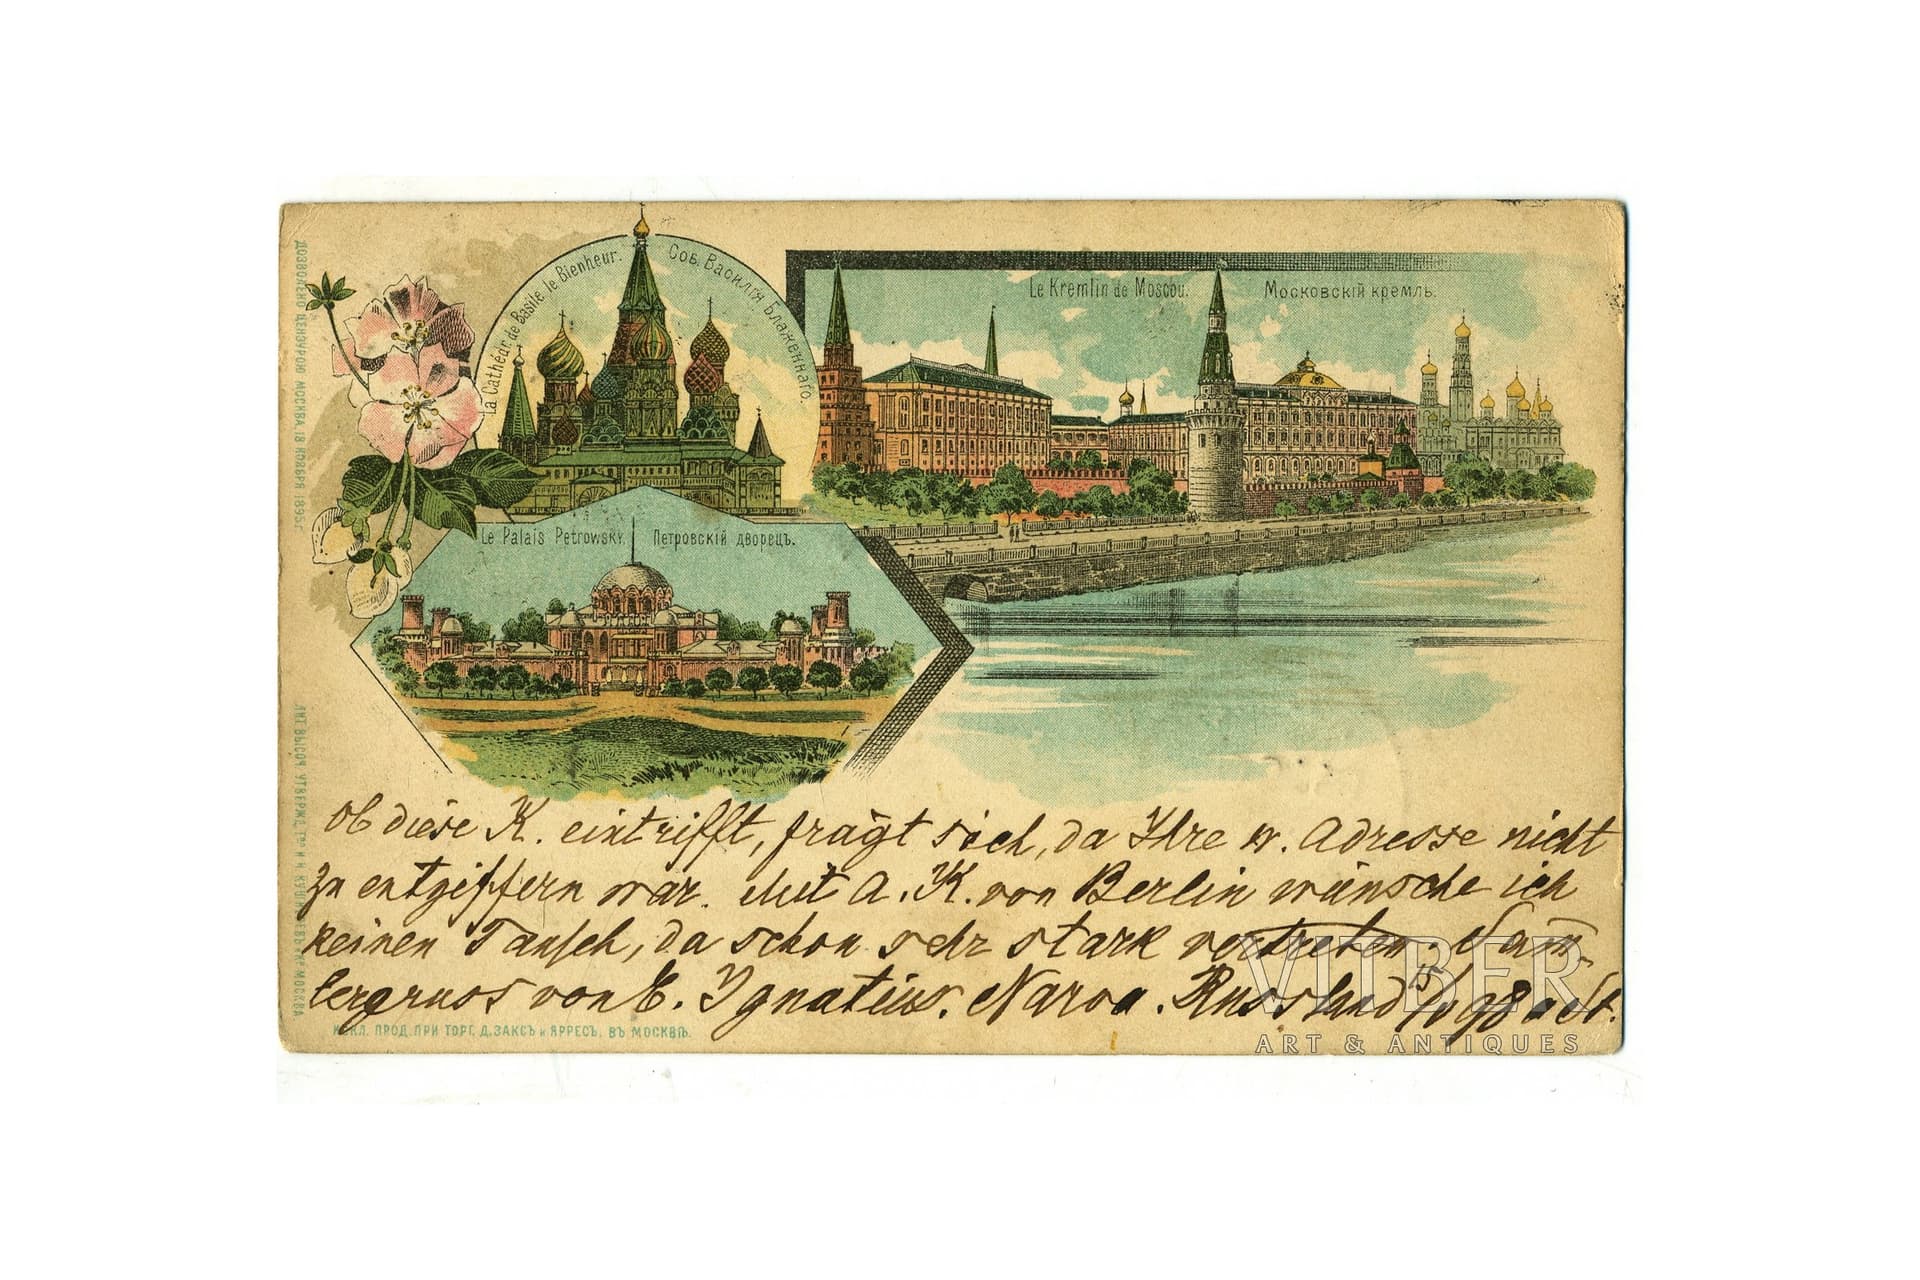 La Cathédr. de Basile le Bienheur. Соб. Василія Блаженнаго.
Le Kremlin de Moscou. Московскій кремль.
Le Palais Petrowsky. Петровскій дворецъ.
ДОЗВОЛЕНО ЦЕНЗУРОЮ МОСКВА, 18 НОЯБРЯ 1895 г.
ЛИТ. ВЫСОЧ. УТВЕРЖД. Т-ва И. Н. КУШНЕРЕВЪ и К° МОСКВА
Ob diese K. eintrifft, fragt sich, da Ihre w. Adresse nicht
zu entziffern war. Mit A. K. von Berlin wünsche ich
keinen Tausch, da schon sehr stark vertreten.
bergruss von E. Ignatius. Narva. Russland 15/10 98 a St.
ИСКЛ. ПРОД. ПРИ ТОРГ. Д. ЗАКСЪ и ЯРРЕСЪ, ВЪ МОСКВѢ.
VITBER
ART & ANTIQUES